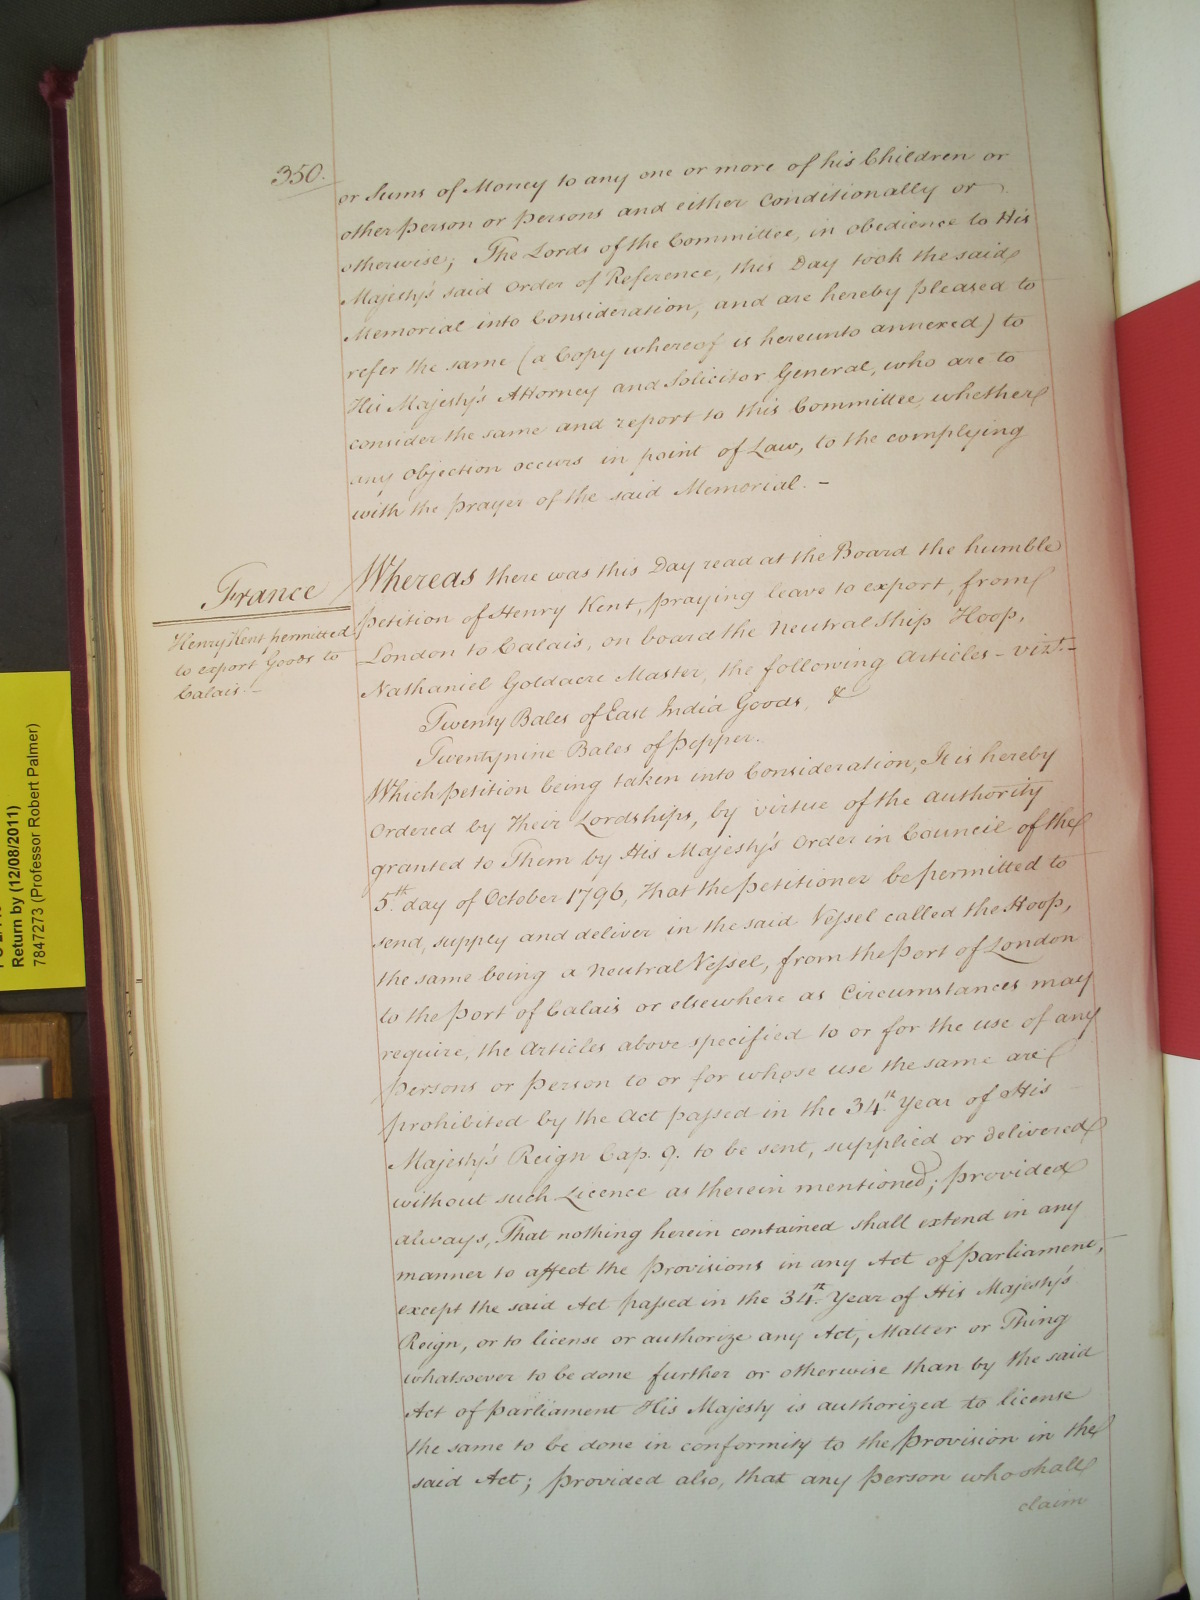 350.
or Sums of Money to any one or more of his Children or
other person or persons and either Conditionally or
otherwise; The Lords of the Committee, in obedience to His
Majesty's said Order of Reference, this Day took the said
Memorial into Consideration, and are hereby pleased to
refer the same (a Copy whereof is hereunto annexed) to
His Majesty's Attorney and Solicitor General, who are to
consider the same and report to this Committee, whether
any Objection occurs in point of Law, to the complying
with the prayer of the said Memorial. -
France
Henry Kent permitted
to export Goods to
Calais. -
Whereas there was this Day read at the Board the humble
petition of Henry Kent, praying leave to export, from
London to Calais, on board the Neutral Ship Hoop,
Nathaniel Goldacre Master, the following Articles - vizt. -
Twenty Bales of East India Goods, &
Twentynine Bales of pepper.
Which petition being taken into Consideration, It is hereby
Ordered by Their Lordships, by virtue of the authority
granted to Them by His Majesty's Order in Council of the
5th. day of October 1796, that the petitioner be permitted to
send, supply and deliver in the said Vessel called the Hoop,
the same being a Neutral Vessel, from the port of London
to the port of Calais or elsewhere as Circumstances may
require, the Articles above specified to or for the use of any
persons or person to or for whose use the same are
prohibited by the Act passed in the 34th. Year of His
Majesty's Reign Cap. 9. to be sent, supplied or delivered
without such Licence as therein mentioned; provided
always, That nothing herein contained shall extend in any
manner to affect the provisions in any Act of parliament,
except the said Act passed in the 34th. Year of His Majesty's
Reign, or to license or authorize any Act, Matter or Thing
whatsoever to be done further or otherwise than by the said
Act of parliament His Majesty is authorized to license
the same to be done in conformity to the provision in the
said Act; provided also, that any person who shall
claim
Return by (12/08/2011)
7847273 (Professor Robert Palmer)